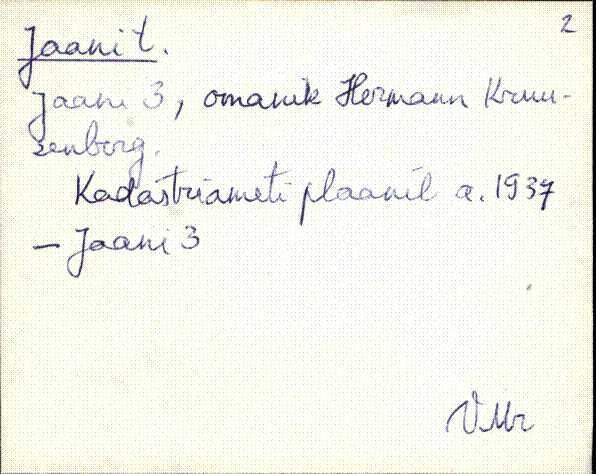 2
Jaani t.
Jaani 3, omanik Hermann Kruu-
senberg.
Kadastriameti plaanil a. 1937
– Jaani 3
VMr